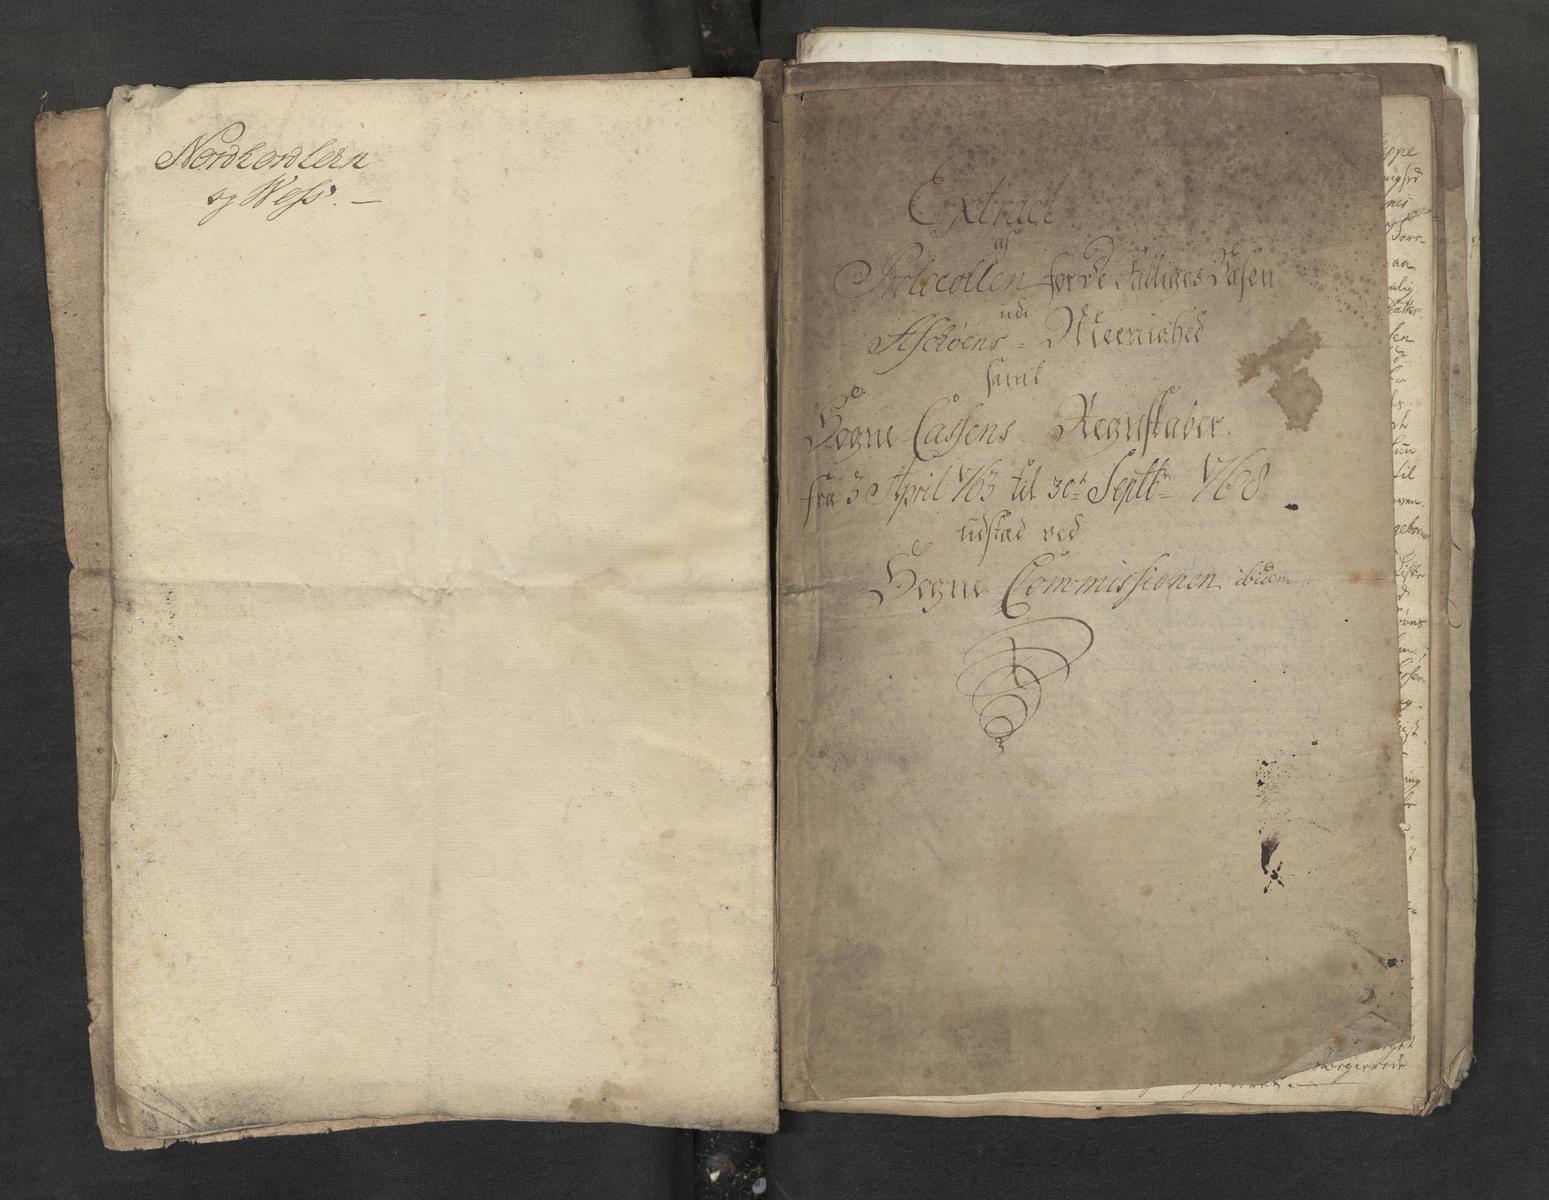 Nordhordlehn
og Woss. —
Extract
af
Protocollen for de Fattiges Væsen
udi
Aschöens - Meenighed
samt
Sogne Cassens Regnskaber
fra 3 April 1763 til 30t Septbr 1768
udstæd ved
Sogne Commissionen ibidem